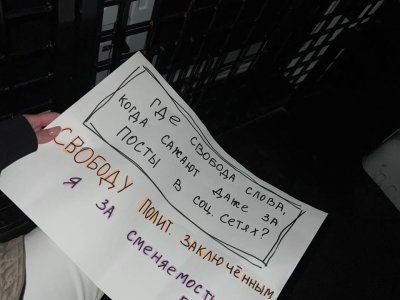 ГДЕ СВОБОДА СЛОВА,
КОГДА САЖАЮТ ДАЖЕ ЗА
ПОСТЫ В СОЦ. СЕТЯХ?
СВОБОДУ ПОЛИТ. ЗАКЛЮЧЁННЫМ
Я ЗА СМЕНЯЕМОСТЬ